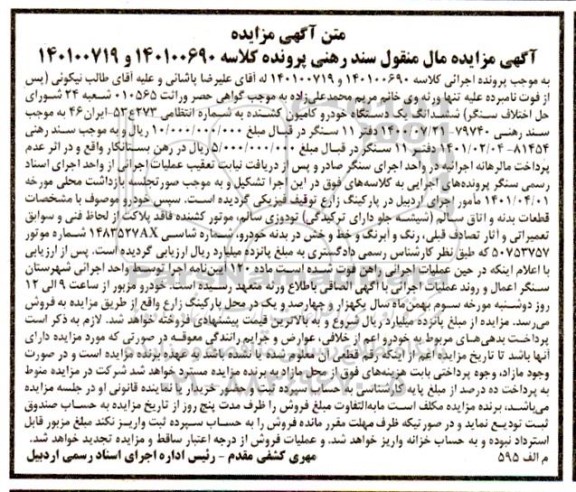 متن آگهی مزایده
آگهی مزایده مال منقول سند رهنی پرونده کلاسه ۱۴۰۱۰۰۶۹۰ و ۱۴۰۱۰۰۷۱۹
به موجب پرونده اجرائی کلاسه ۱۴۰۱۰۰۶۹۰ و ۱۴۰۱۰۰۷۱۹ له آقای علیرضا پاشائی و علیه آقای طالب نیکوئی (پس
از فوت نامبرده علیه تنها ورثه وی خانم مریم محمدعلی‌زاده به موجب گواهی حصر وراثت ۰۱۰۵۶۵ شعبه ۲۴ شورای
حل اختلاف سنگر) ششدانگ یک دستگاه خودرو کامیون کشنده به شماره انتظامی ۲۷۳ع۵۲-ایران۴۶ به موجب
سند رهنی ۷۹۷۴۰-۱۴۰۰/۰۷/۲۱ دفتر ۱۱ سنگر در قبال مبلغ ۱۰/۰۰۰/۰۰۰/۰۰۰ ریال و به موجب سند رهنی
۸۱۴۵۴-۱۴۰۱/۰۲/۰۴ دفتر ۱۱ سنگر در قبال مبلغ ۵/۰۰۰/۰۰۰/۰۰۰ ریال در رهن بستانکار واقع و در اثر عدم
پرداخت مالرهانه اجرائیه در واحد اجرای سنگر صادر و پس از دریافت نیابت تعقیب عملیات اجرائی از واحد اجرای اسناد
رسمی سنگر پرونده‌های اجرایی به کلاسه‌های فوق در این اجرا تشکیل و به موجب صورتجلسه بازداشت محلی مورخه
۱۴۰۱/۰۴/۰۱ مأمور اجرای اردبیل در پارکینگ زارع توقیف فیزیکی گردیده است. سپس خودرو موصوف با مشخصات
قطعات بدنه و اتاق سالم (شیشه جلو دارای ترکیدگی) تودوزی سالم، موتور کشنده فاقد پلاکت از لحاظ فنی و سوابق
تعمیراتی و آثار تصادف قبلی، رنگ و آبرنگ و خط و خش در بدنه خودرو، شماره شاسی ۱۴۸۳۵۲۷۸X شماره موتور
۵۰۷۵۳۷۵۷ که طبق نظر کارشناس رسمی دادگستری به مبلغ پانزده میلیارد ریال ارزیابی گردیده است. پس از ارزیابی
با اعلام اینکه در حین عملیات اجرائی راهن فوت شده است ماده ۱۲۰ آیین‌نامه اجرا در واحد اجرائی شهرستان
سنگر اعمال و روند عملیات اجرایی با آگهی الصاقی باطلاع ورثه متعهد رسیده است. خودرو مزبور از ساعت ۹ الی ۱۲
روز دوشنبه مورخه سوم بهمن‌ماه سال یکهزار و چهارصد و یک در محل پارکینگ زارع واقع از طریق مزایده به فروش
می‌رسد. مزایده از مبلغ پانزده میلیارد ریال شروع و به بالاترین قیمت پیشنهادی فروخته خواهد شد. لازم به ذکر است
پرداخت بدهی‌های مربوط به خودرو اعم از خلافی، عوارض و جرایم رانندگی معوقه در صورتی که مورد مزایده دارای
آنها باشد تا تاریخ مزایده اعم از اینکه رقم قطعی آن معلوم شده یا نشده باشد و عهده برنده مزایده است و در صورت
وجود مازاد، وجوه پرداختی بابت هزینه‌های فوق از محل مازاد به برنده مزایده مسترد خواهد شد شرکت در مزایده منوط
به پرداخت ده درصد از مبلغ پایه کارشناسی به حساب سپرده ثبت و حضور خریدار یا نماینده قانونی او در جلسه مزایده
می‌باشد، برنده مزایده مکلف است مابه‌التفاوت مبلغ فروش را ظرف مدت پنج روز از تاریخ مزایده به حساب صندوق
ثبت تودیع نماید و در صورتیکه ظرف مهلت مقرر مانده فروش را به حساب سپرده ثبت واریز نکند مبلغ مزبور قابل
استرداد نبوده و به حساب خزانه واریز خواهد شد. و عملیات فروش از درجه اعتبار ساقط و مزایده تجدید خواهد شد.
م الف ۵۹۵ مهری کشفی مقدم - رئیس اداره اجرای اسناد رسمی اردبیل